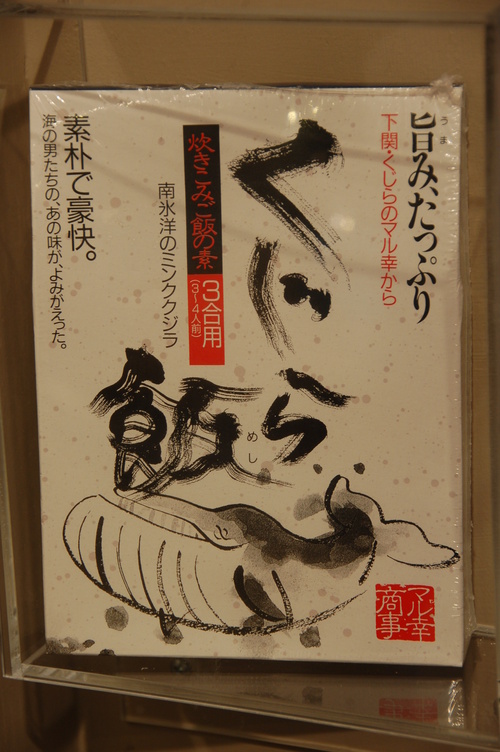 旨み、たっぷり
うま
下関・くじらのマル幸から
くじら
飯
めし
炊きこみご飯の素
3合用
(3〜4人前)
南氷洋のミンククジラ
素朴で豪快。
海の男たちの、あの味が、よみがえった。
マル幸
商事